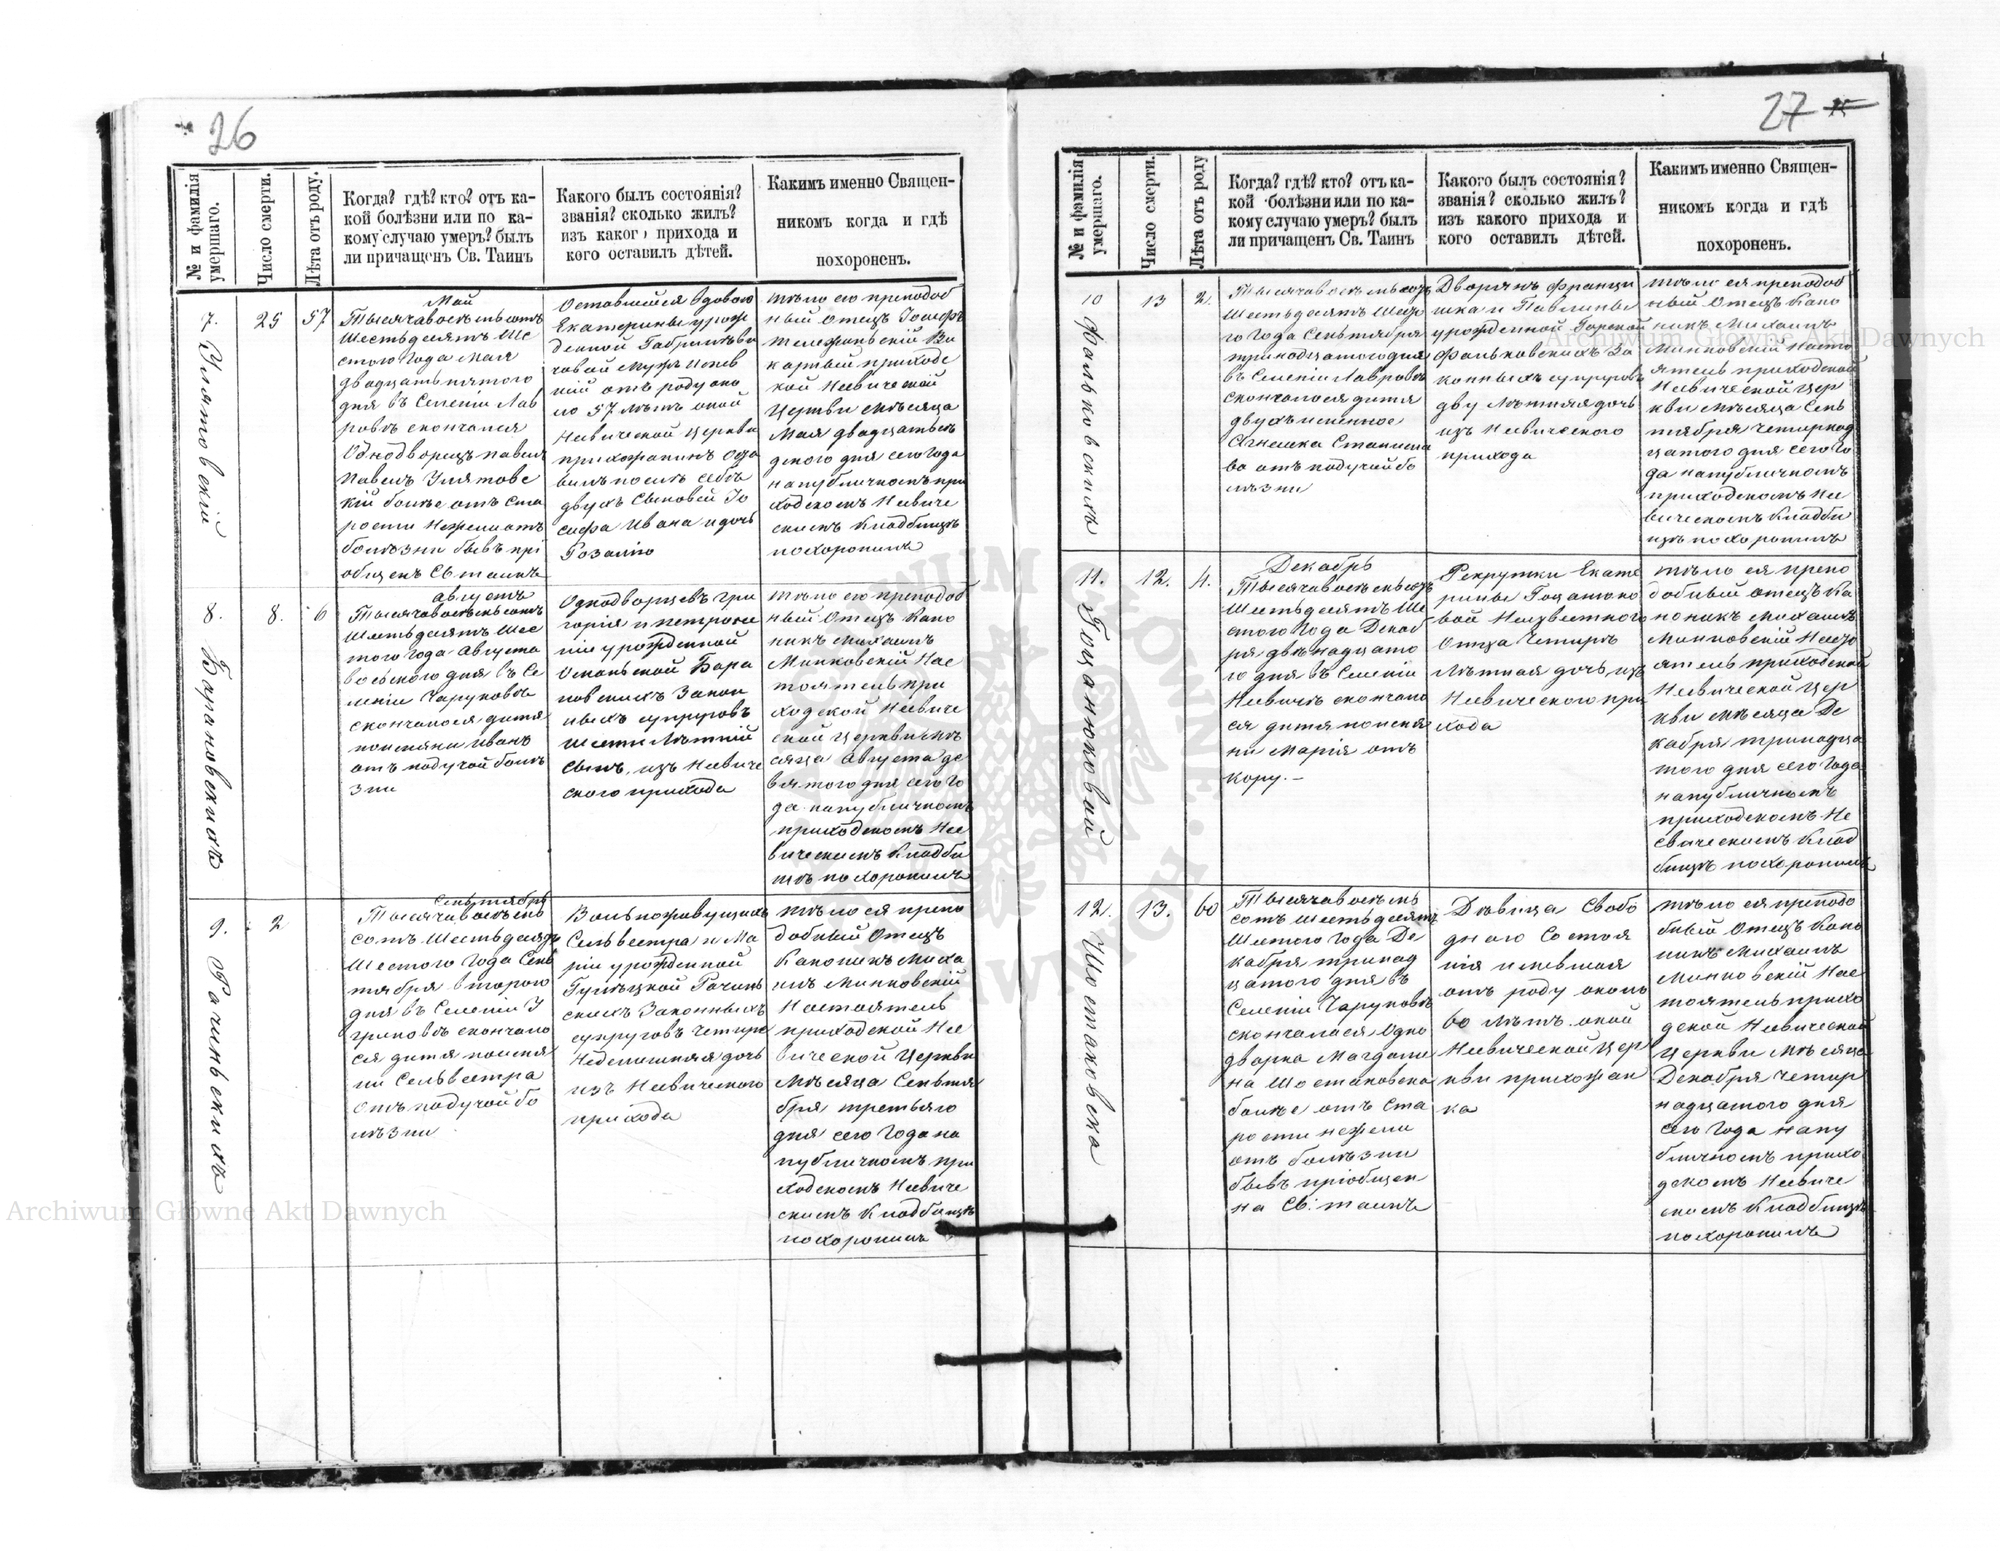 26
№ и фамилія умершаго.
Число смерти.
Лѣта отъ роду.
Когда? гдѣ? кто? отъ ка-
кой болѣзни или по ка-
кому случаю умеръ? былъ
ли причащенъ Св. Таинъ
Какого былъ состоянія?
званія? сколько жилъ?
изъ какого прихода и
кого оставилъ дѣтей.
Какимъ именно Священ-
никомъ когда и гдѣ
похороненъ.
7.
Улятовскій
25
57
Май
Тысяча восемьсотъ
Шестьдесятъ Ше
стого Года Мая
двадцать пятого
дня въ Селеніи Лав
ровъ скончался
Однодворецъ
Павелъ Улятовс
кій болѣе отъ Ста
рости Нежели отъ
болѣзни бывъ прі
общенъ Св таинъ
Оставшейся вдовою
Екатерины урож
денной Габриловъ
имѣв
шій отъ роду око
ло 57 лѣтъ оной
Несвической церкви
прихожанинъ Оста
вилъ послѣ себя
двухъ Сыновей Іо
сифа Ивана и дочь
Розалію
тѣло его преподоб
ный Отецъ Іосифъ
Ви
карный приходс
кой Несвической
Церкви мѣсяца
Мая двадцать се
дмого дня сего Года
на публичномъ при
ходскомъ Несвиче
скомъ Кладбищѣ
похоронилъ
8.
Барановскихъ
8.
6
Августъ
Тысяча восемьсотъ
Шестьдесятъ Шес
того Года Августа
восьмого дня въ Се
леніи Чаруковъ
скончалося дитя
поселяни Иванъ
отъ падучой болѣ
зни
Однодворцевъ Гри
горія и петроне
ліи урожденной
Осмольской Бара
новскихъ Закон
ныхъ супруговъ
Шести Лѣтній
Сынъ, изъ Несвиче
ского прихода
тѣло его преподоб
ный Отецъ Кано
никъ Михаилъ
Минковскій Нас
тоятель при
ходской Несвиче
ской Церкви мѣ
сяца Августа де
вятого дня сего Го
да на публичномъ
приходскомъ Нес
вическомъ Кладби
щѣ похоронилъ
9.
Рачинскихъ
2
Сентябрь
Тысяча восемь
сотъ Шестьдесятъ
Шестого Года Сен
тября второго
дня въ Селеніи У
гриновъ скончало
ся дитя поселя
ни Сельвестра
отъ падучой бо
лѣзни
Вольноживущихъ
Сельвестра и Ма
ріи урожденной
Гульцкой Рачин
скихъ Законныхъ
супруговъ четыре
Недельшняя дочь
изъ Несвического
прихода
тѣло ея препо
добный Отецъ
Каноникъ Миха
илъ Минковскій
Настоятель
приходской Нес
вической Церкви
Мѣсяца Сентя
бря третьяго
дня сего Года на
публичномъ при
ходскомъ Несвиче
скомъ Кладбищѣ
похоронилъ
27
№ и фамилія умершаго.
Число смерти.
Лѣта отъ роду
Когда? гдѣ? кто? отъ ка-
кой болѣзни или по ка-
кому случаю умеръ? былъ
ли причащенъ Св. Таинъ
Какого былъ состоянія?
званія? сколько жилъ?
изъ какого прихода и
кого оставилъ дѣтей.
Какимъ именно Священ-
никомъ когда и гдѣ
похороненъ.
10
Фальковскихъ
13
2.
Тысяча восемьсотъ
Шестьдесятъ Шесто
го Года Сентября
тринадцатого дня
въ Селеніи Лавровъ
скончалося дитя
двухъименное
Агнешка Станисла
ва отъ падучой бо
лѣзни
Дворянъ Францы
шка и Павлины
урожденной Горской
Фальковскихъ За
конныхъ супруговъ
двулѣтняя дочь
изъ Несвического
прихода
тѣло ея преподоб
ный Отецъ Кано
никъ Михаилъ
Минковскій Насто
ятель приходской
Несвической Цер
кви мѣсяца Сен
тября четырнад
цатого дня сего Го
да на публичномъ
приходскомъ Нес
вическомъ Кладби
щѣ похоронилъ
11.
Гоцанюковой
12.
4.
Декабрь
Тысяча восемьсотъ
Шестьдесятъ Ше
стого Года Декаб
ря двѣнадцато
го дня въ Селеніи
Несвичъ скончало
ся дитя поселя
ни Марія отъ
кору. –
Рекрутки Екате
рины Гоцанюко
вой Неизвестного
Отца Четырѣ
лѣтняя дочь изъ
Несвического при
хода
тѣло ея препо
добный отецъ Ка
ноникъ Михаилъ
Минковскій Насто
ятель приходской
Несвической Цер
кви мѣсяца Де
кабря тринадца
того дня сего Года
на публичномъ
приходскомъ Не
свическомъ Клад
бищѣ похоронилъ
12.
Шостаковска
13.
60
Тысяча восемь
сотъ Шестьдесятъ
Шестого Года Де
кабря тринад
цатого дня въ
Селеніи Чаруковъ
скончалася Одно
дворка Магдале
на Шостаковска
болѣе отъ Ста
рости нежели
отъ болѣзни
бывъ пріобщен
на Св: таинъ
Дѣвица Свобо
дного Состоя
нія имевшая
отъ роду около
60 лѣтъ. оной
Несвической цер
кви прихожан
ка
тѣло ея преподо
бный Отецъ Кано
никъ Михаилъ
Минковскій Нас
тоятель прихо
дской Несвической
Церкви мѣсяца
Декабря четыр
надцатого дня
сего Года на пу
бличномъ прихо
дскомъ Несвиче
скомъ Кладбищѣ
похоронилъ
Archiwum Główne Akt Dawnych
Archiwum Główne Akt Dawnych